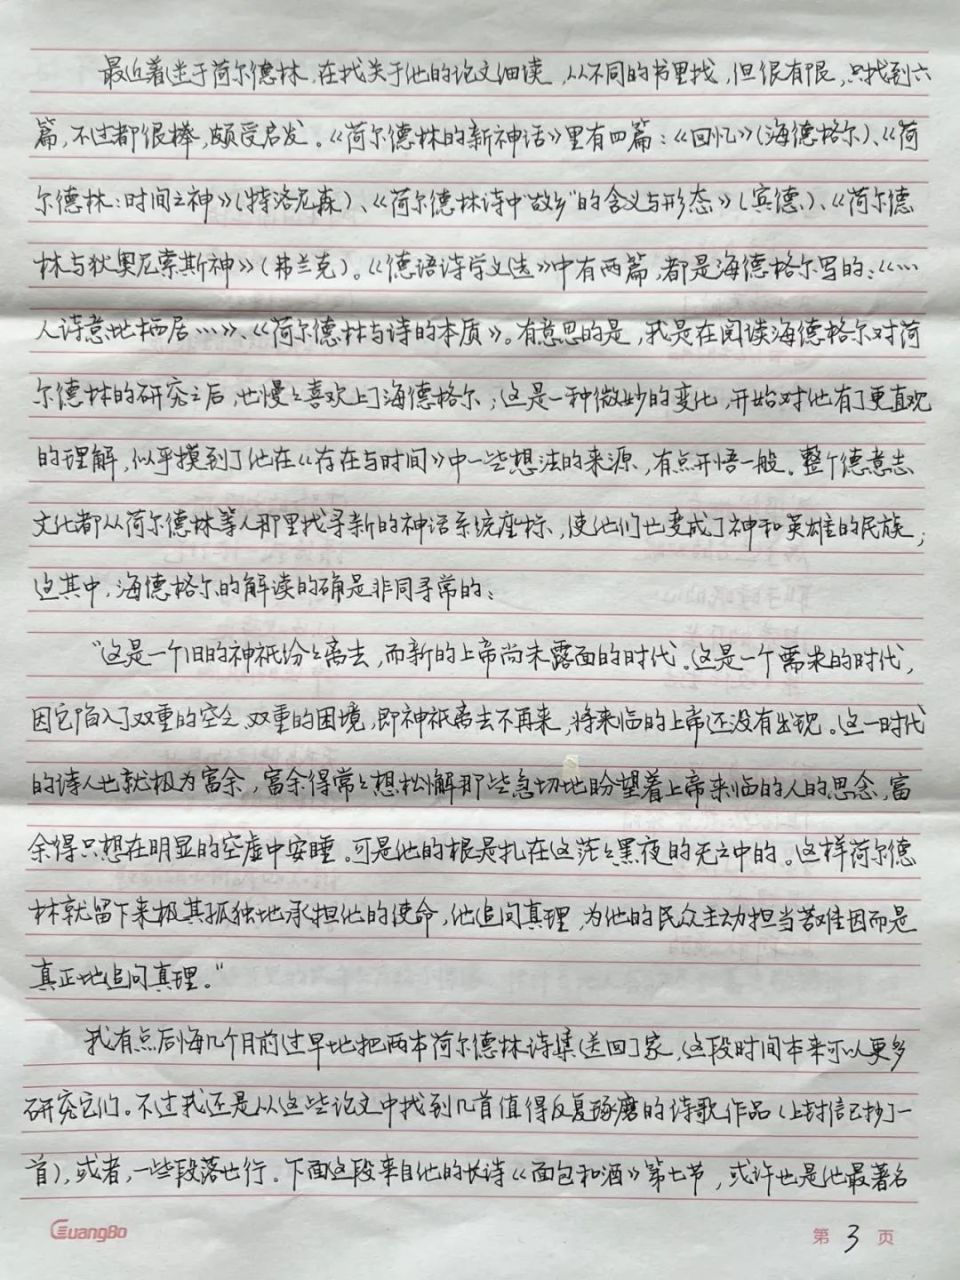 最近着迷于荷尔德林,在找关于他的论文细读,从不同的书里找,但很有限,只找到六
篇,不过都很棒,颇受启发。《荷尔德林的新神话》里有四篇:《回忆》(海德格尔)、《荷
尔德林:时间之神》(特洛尼森)、《荷尔德林诗中“故乡”的含义与形态》(宾德)、《荷尔德
林与狄奥尼索斯神》(弗兰克)。《德语诗学文选》中有两篇,都是海德格尔写的:《…
人诗意地栖居……》、《荷尔德林与诗的本质》。有意思的是,我是在阅读海德格尔对荷
尔德林的研究之后,也慢々喜欢上了海德格尔;这是一种微妙的变化,开始对他有了更直观
的理解,似乎摸到了他在《存在与时间》中一些想法的来源,有点开悟一般。整个德意志
文化都从荷尔德林等人那里找寻新的神话系统座标,使他们也变成了神和英雄的民族;
这其中,海德格尔的解读的确是非同寻常的:
“这是一个旧的神祇纷々离去,而新的上帝尚未露面的时代。这是一个需求的时代,
因它陷入了双重的空乏,双重的困境,即神祇离去不再来,将来临的上帝还没有出现。这一时代
的诗人也就极为富余,富余得常々想松懈那些急切地盼望着上帝来临的人的思念,富
余得只想在明显的空虚中安睡。可是他的根是扎在这茫々黑夜的无之中的。这样荷尔德
林就留下来极其孤独地承担他的使命,他追问真理,为他的民众主动担当苦难因而是
真正地追问真理。”
我有点后悔几个月前过早地把两本荷尔德林诗集送回了家,这段时间本来可以更多
研究它们。不过我还是从这些论文中找到几首值得反复琢磨的诗歌作品(上封信已抄了一
首),或者,一些段落也行。下面这段来自他的长诗《面包和酒》第七节,或许也是他最著名
GuangBo
第 3 页